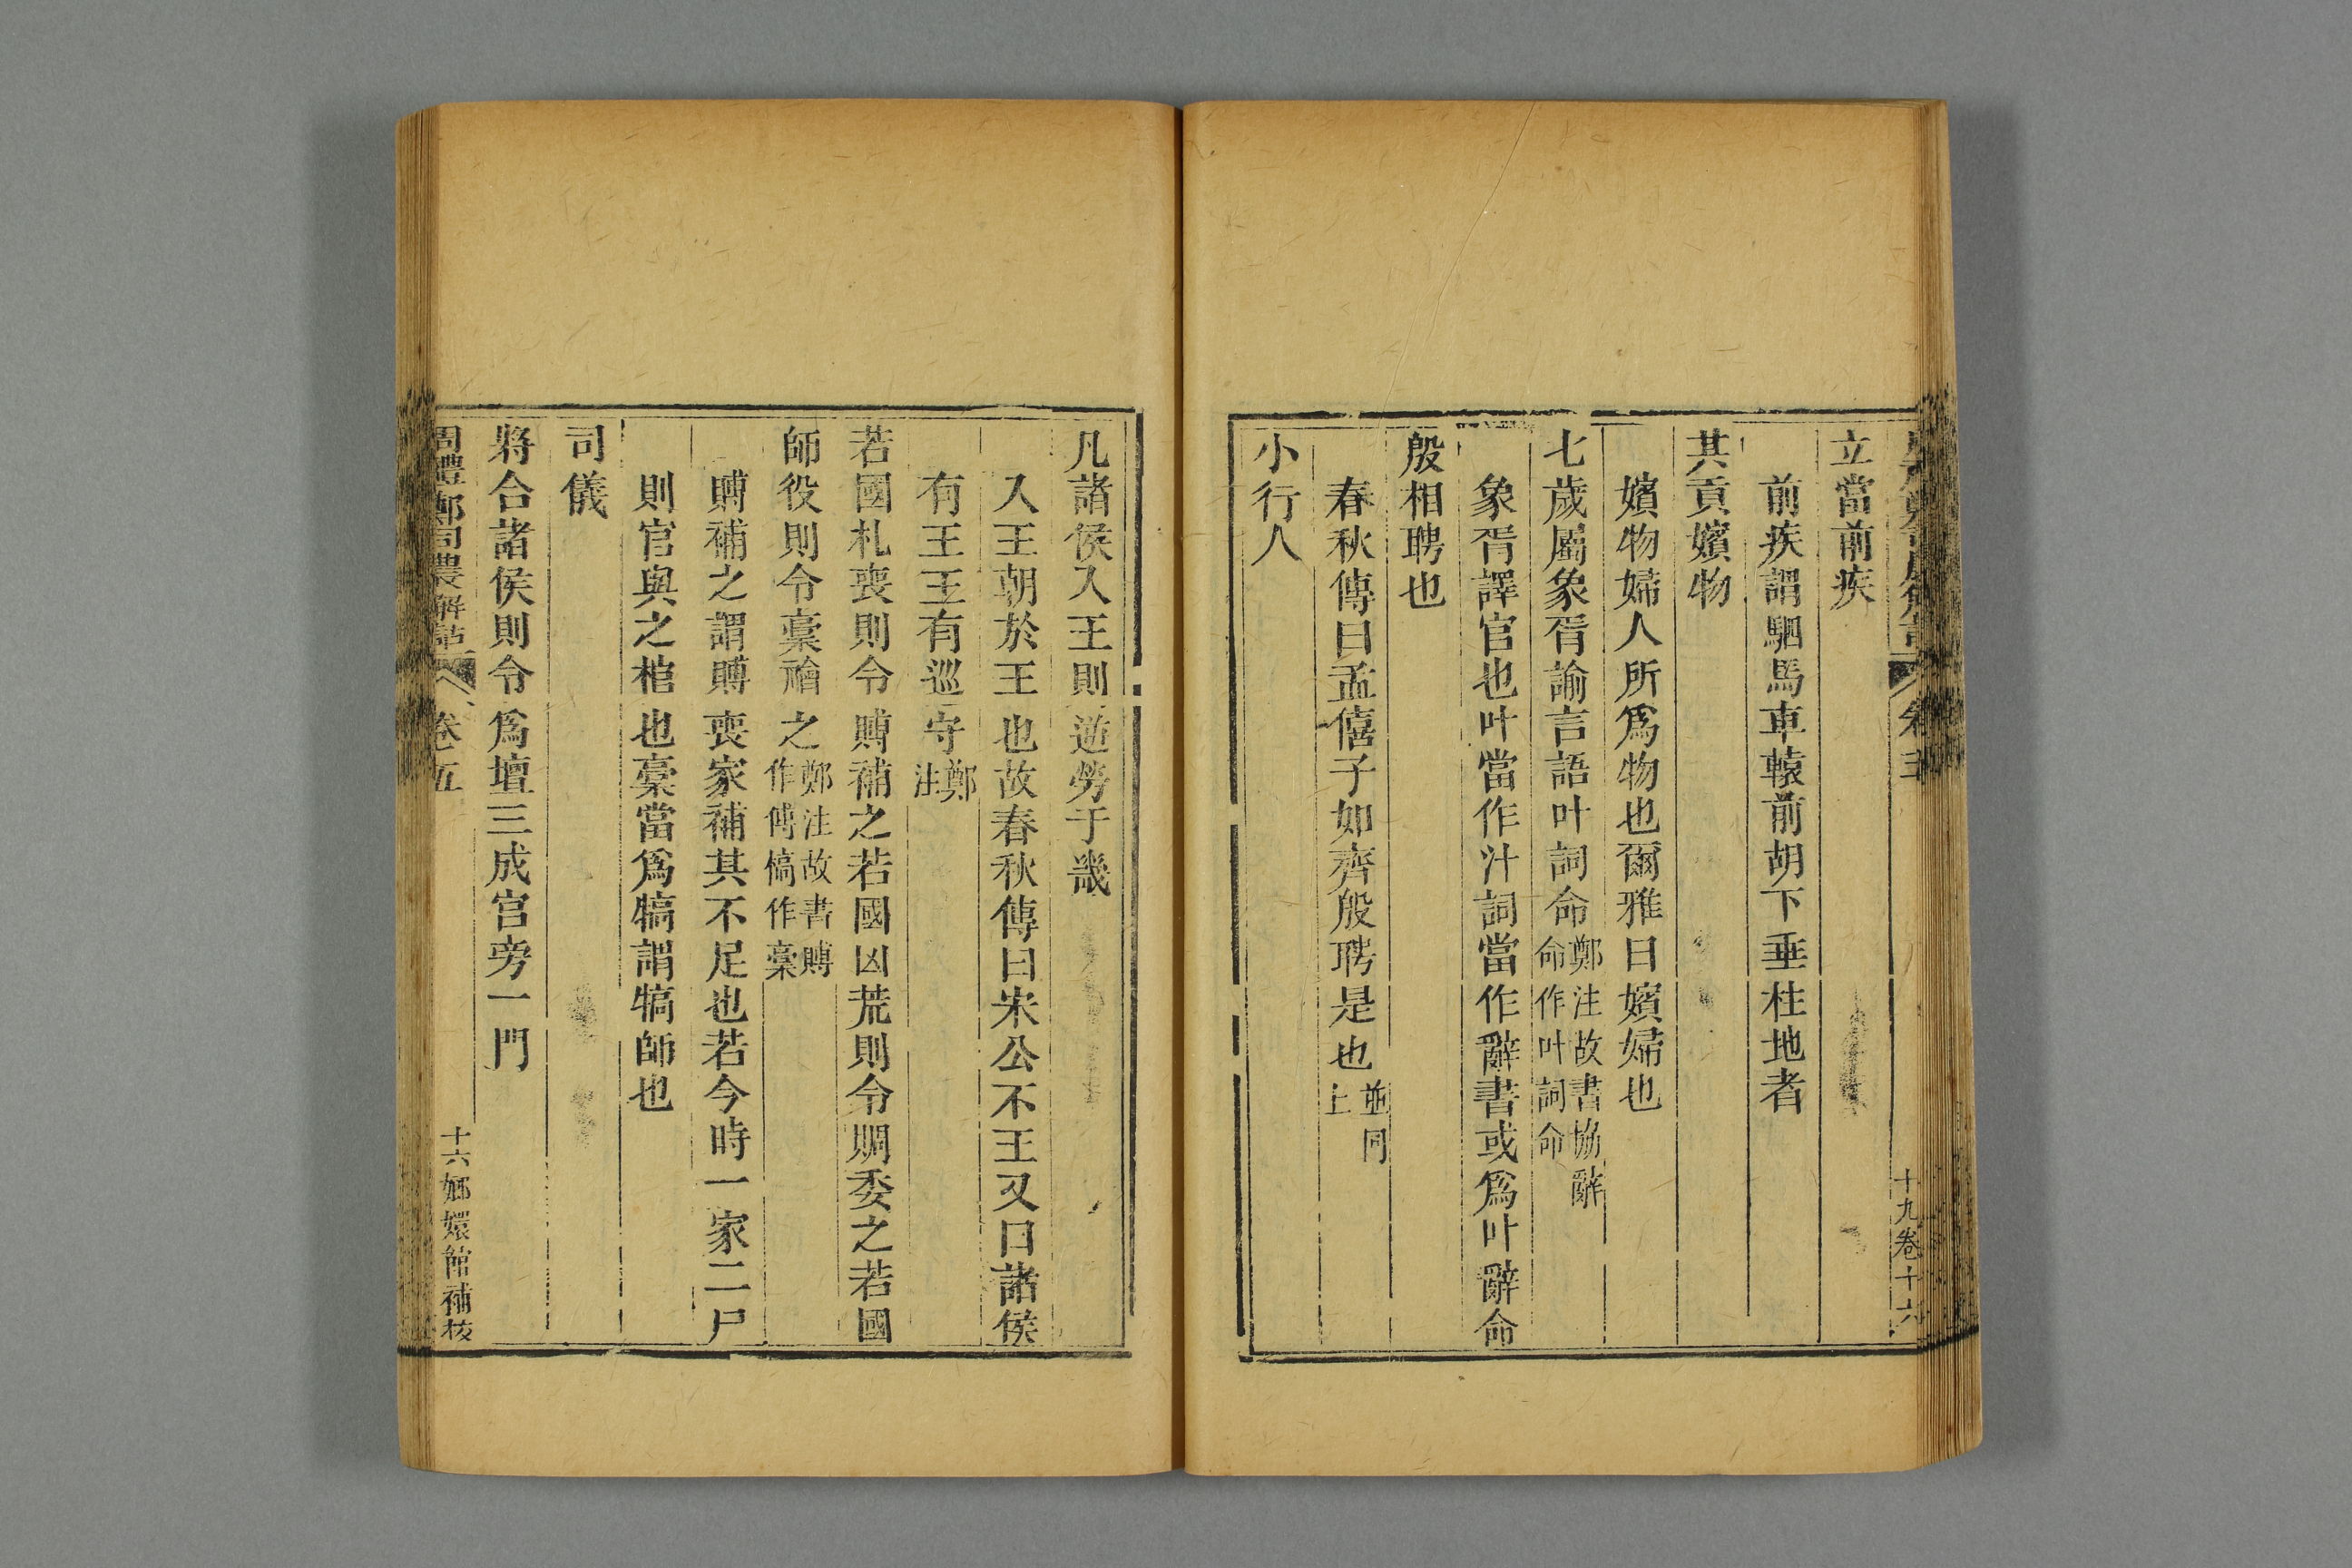 立當前疾
前疾謂駟馬車轅前胡下垂柱地者
其貢嬪物
嬪物婦人所爲物也爾雅曰嬪婦也
七歲屬象胥諭言語叶詞命鄭注故書協辭
命作叶詞命
象胥譯官也叶當作汁詞當作辭書或爲叶辭命
殷相聘也
春秋傳曰孟僖子如齊殷聘是也並同
上
小行人
凡諸侯入王則逆勞于畿
入王朝於王也故春秋傳曰宋公不王又曰諸侯
有王王有巡守鄭
注
若國札喪則令賻補之若國凶荒則令賙委之若國
師役則令槀禬之鄭注故書賻
作傅槁作槀
賻補之謂賻喪家補其不足也若今時一家二尸
則官與之棺也槀當爲犒謂犒師也
司儀
將合諸侯則令爲壇三成宮旁一門
周禮鄭司農解詁
卷五
十六嫏嬛館補校